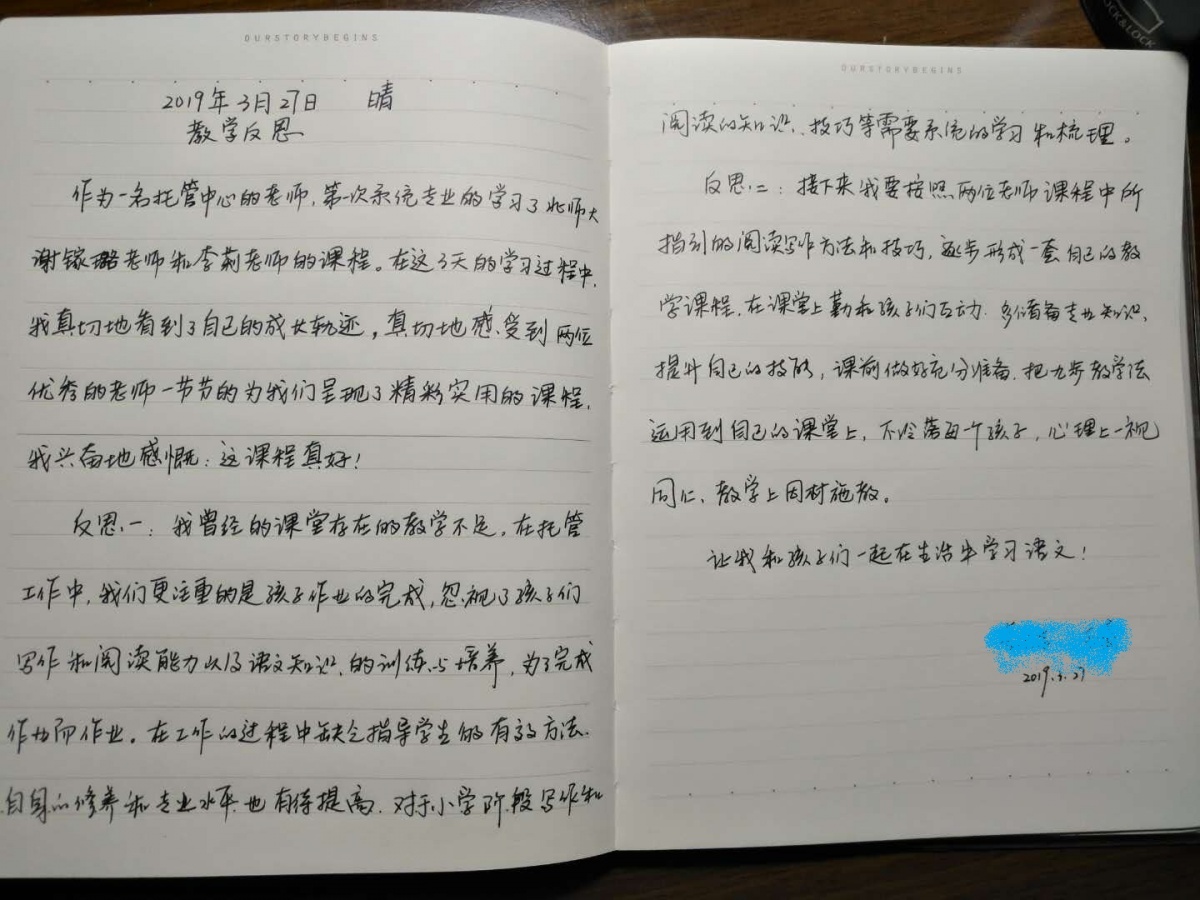 OURSTORYBEGINS
2019年3月27日 晴
教学反思
作为一名托管中心的老师,第一次系统专业的学习了北师大
谢镓璐老师和李莉老师的课程。在这3天的学习过程中,
我真切地看到了自己的成长轨迹,真切地感受到两位
优秀的老师一节节的为我们呈现了精彩实用的课程,
我兴奋地感慨:这课程真好!
反思一:我曾经的课堂存在的教学不足,在托管
工作中,我们更注重的是孩子作业的完成,忽视了孩子们
写作和阅读能力以及语文知识的训练与培养,为了完成
作业而作业。在工作的过程中缺乏指导学生的有效方法.
自身的修养和专业水平也有待提高.对于小学阶段写作和
OURSTORYBEGINS
阅读的知识、技巧等需要系统的学习和梳理。
反思二:接下来我要按照两位老师课程中所
指到的阅读写作方法和技巧,逐步形成一套自己的教
学课程,在课堂上勤和孩子们互动.多储备专业知识、
提升自己的技能,课前做好充分准备.把九步教学法
运用到自己的课堂上,不冷落每一个孩子,心理上一视
同仁、教学上因材施教。
让我和孩子们一起在生活中学习语文!
2019.3.27
LOCK&LOCK